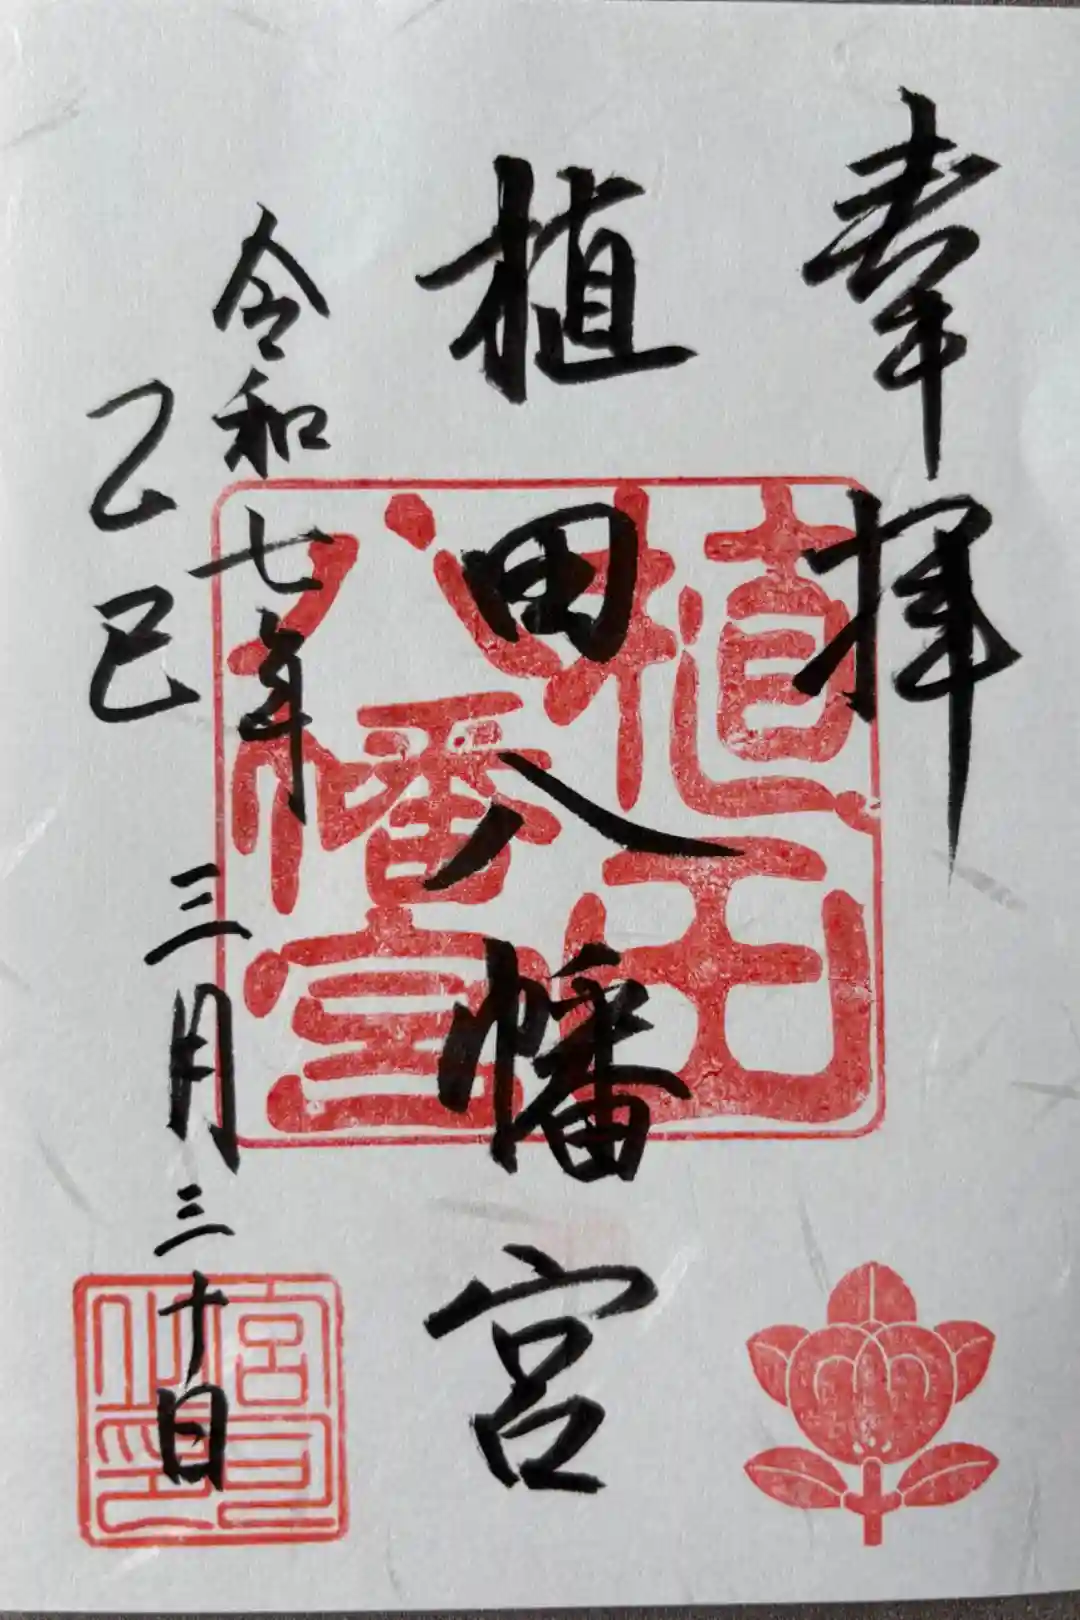 奉拝
植田八幡宮
令和七年 三月三十日
乙巳
植田
八幡宮
宮司
之印